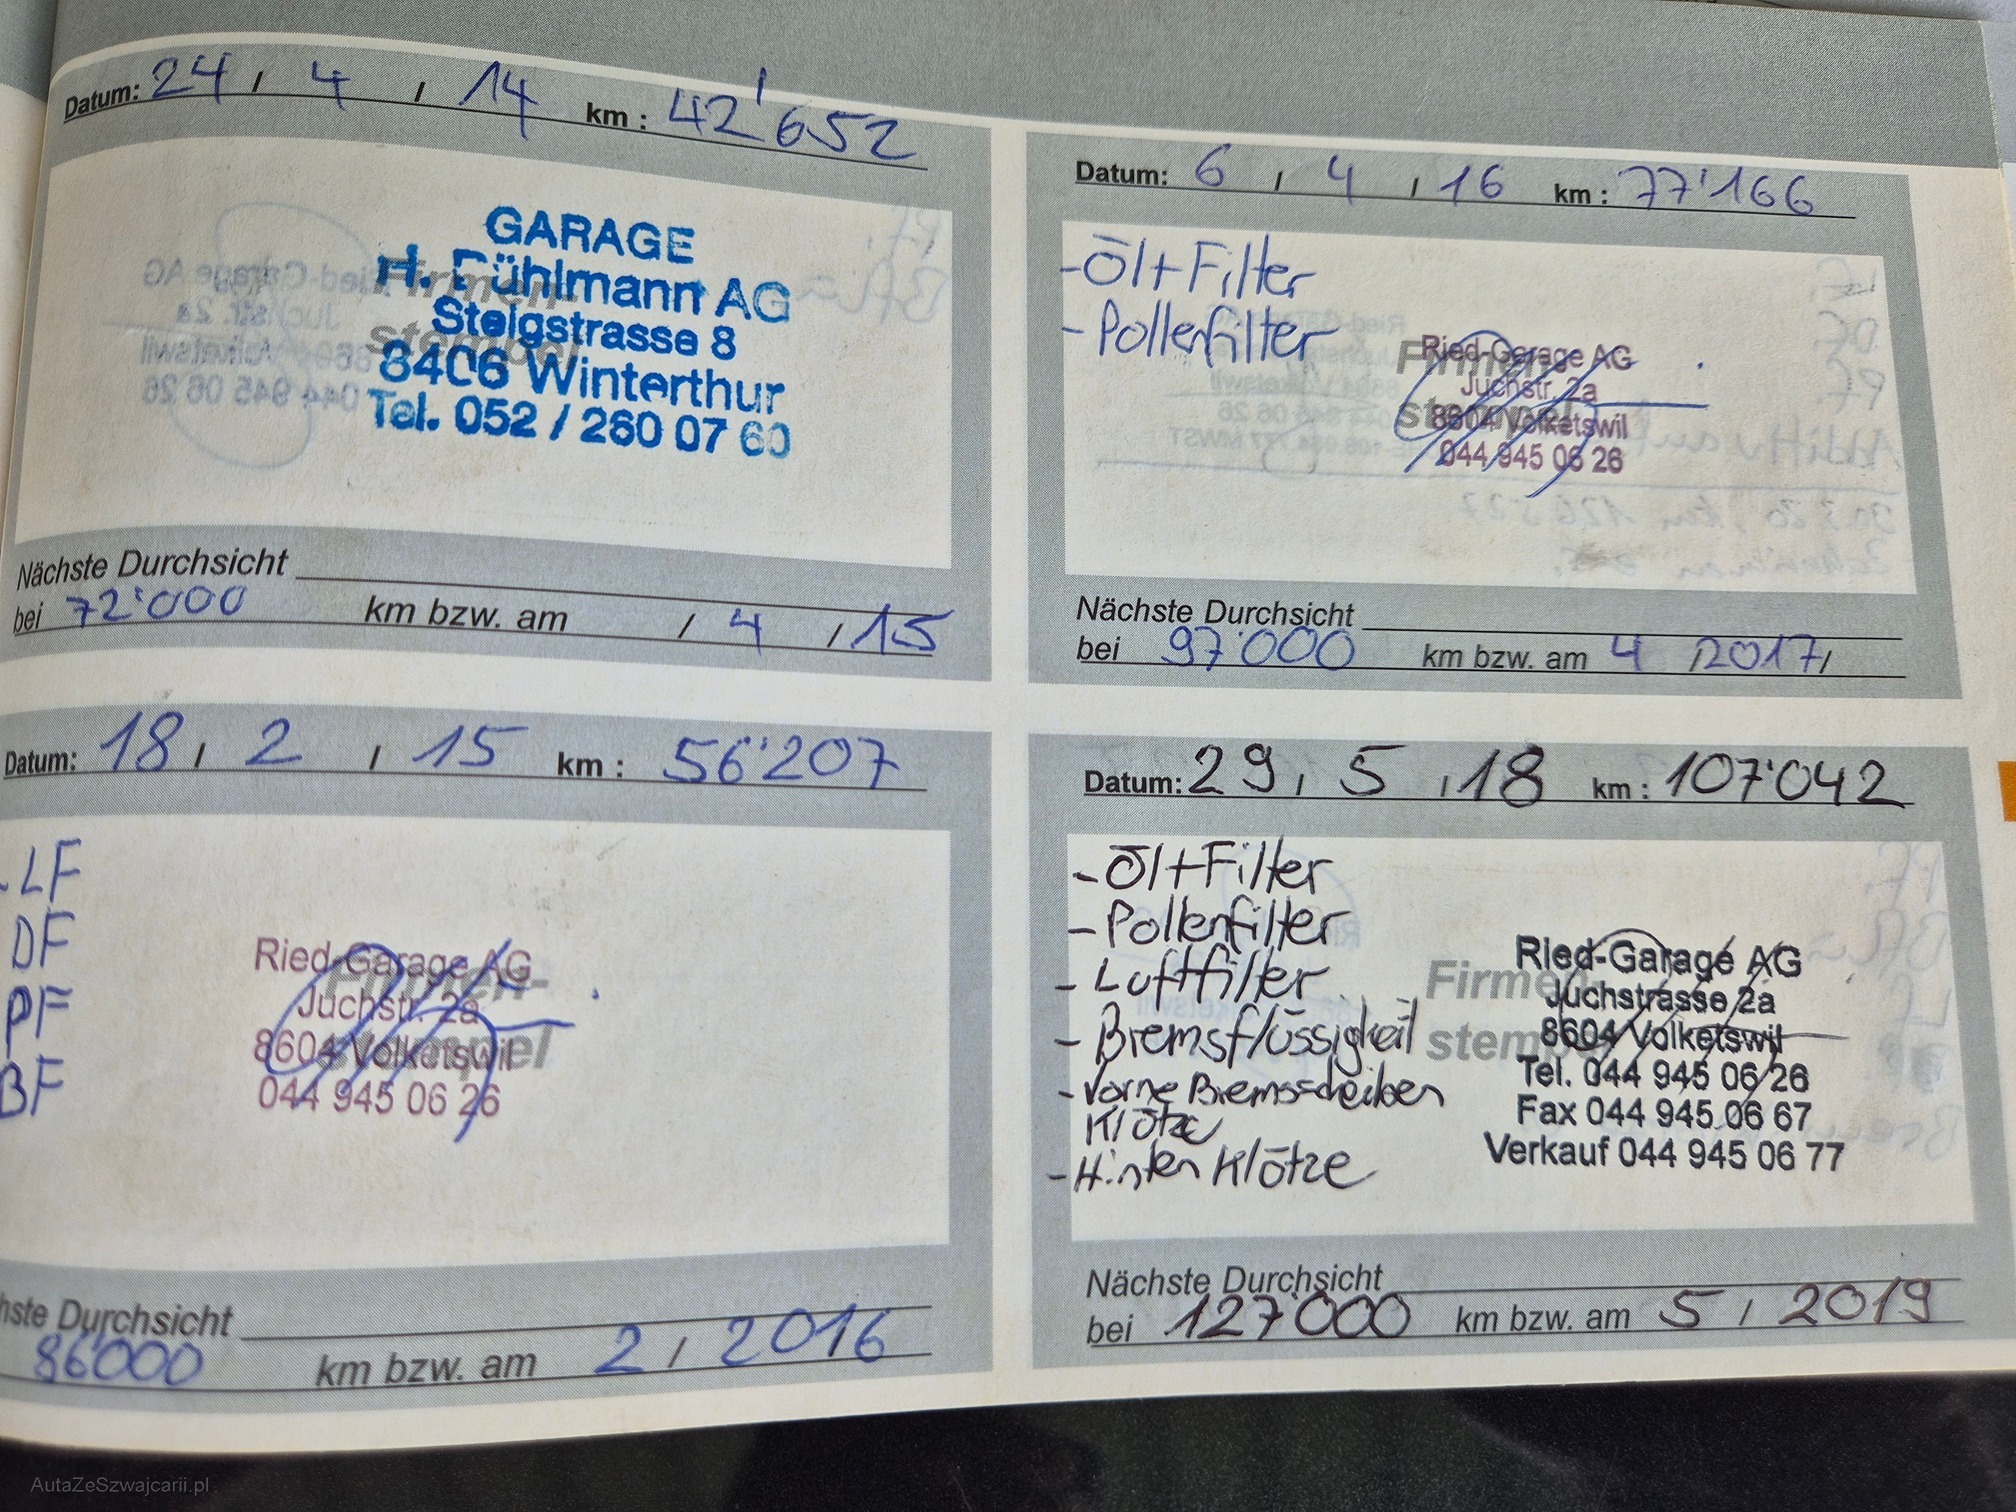 Datum: 24 / 4 / 14 km : 42'652
GARAGE
H. Bühlmann AG
Steigstrasse 8
8406 Winterthur
Tel. 052 / 260 07 60
Firmen-
stempel
Nächste Durchsicht
bei 72'000 km bzw. am / 4 / 15
Datum: 18 / 2 / 15 km : 56'207
- LF
DF
PF
BF
Ried-Garage AG
Juchstr. 2a
8604 Volketswil
044 945 06 26
Firmen-
stempel
hste Durchsicht
86'000 km bzw. am 2 / 2016
Datum: 6 / 4 / 16 km : 77'166
- Öl + Filter
- Pollenfilter
Ried-Garage AG
Juchstr. 2a
8604 Volketswil
044 945 06 26
Firmen-
stempel
Nächste Durchsicht
bei 97'000 km bzw. am 4 / 2017 /
Datum: 29 / 5 / 18 km : 107'042
- Öl + Filter
- Pollenfilter
- Luftfilter
- Bremsflüssigkeit
- Vorne Bremsscheiben
Klötze
- Hinten Klötze
Firmen-
stempel
Ried-Garage AG
Juchstrasse 2a
8604 Volketswil
Tel. 044 945 06 26
Fax 044 945 06 67
Verkauf 044 945 06 77
Nächste Durchsicht
bei 127'000 km bzw. am 5 / 2019
AutaZeSzwajcarii.pl